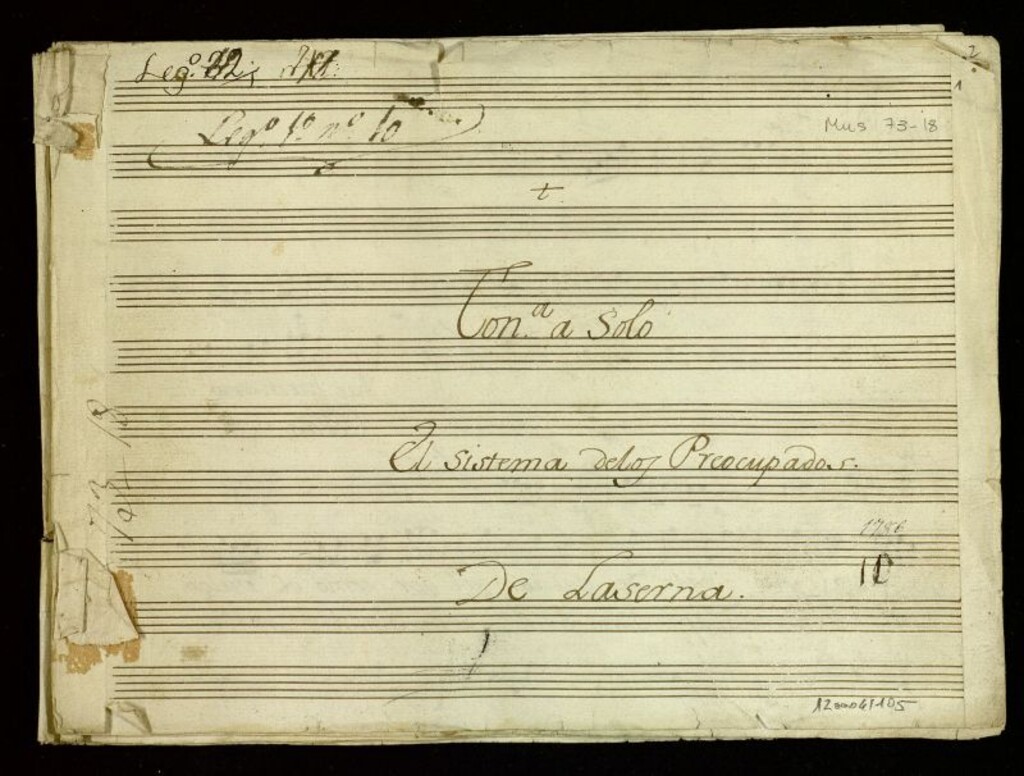 Leg.º
Leg.º 1º nº 10
2
1
Mus 73-18
Ton.ª a Solo
El sistema delos Preocupados.
1786
10
De Laserna.
1200041105